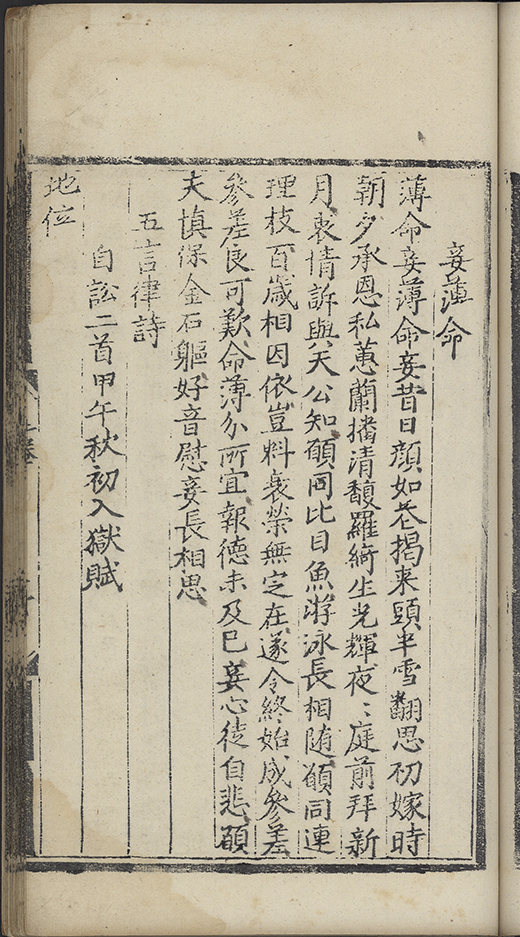 妾薄命
薄命妾薄命妾昔日顔如花朅来頭半雪翻思初嫁時
朝夕承恩私蕙蘭播清馥羅綺生光輝夜〻庭前拜新
月衷情訴與天公知願同比目魚游泳長相随願同連
理枝百歳相因依豈料衰榮無定在遂令終始成參差
參差良可歎命薄分所宜報徳未及已妾心徒自悲願
夫慎保金石軀好音慰妾長相思
五言律詩
自訟二首甲午秋初入獄賦
地位